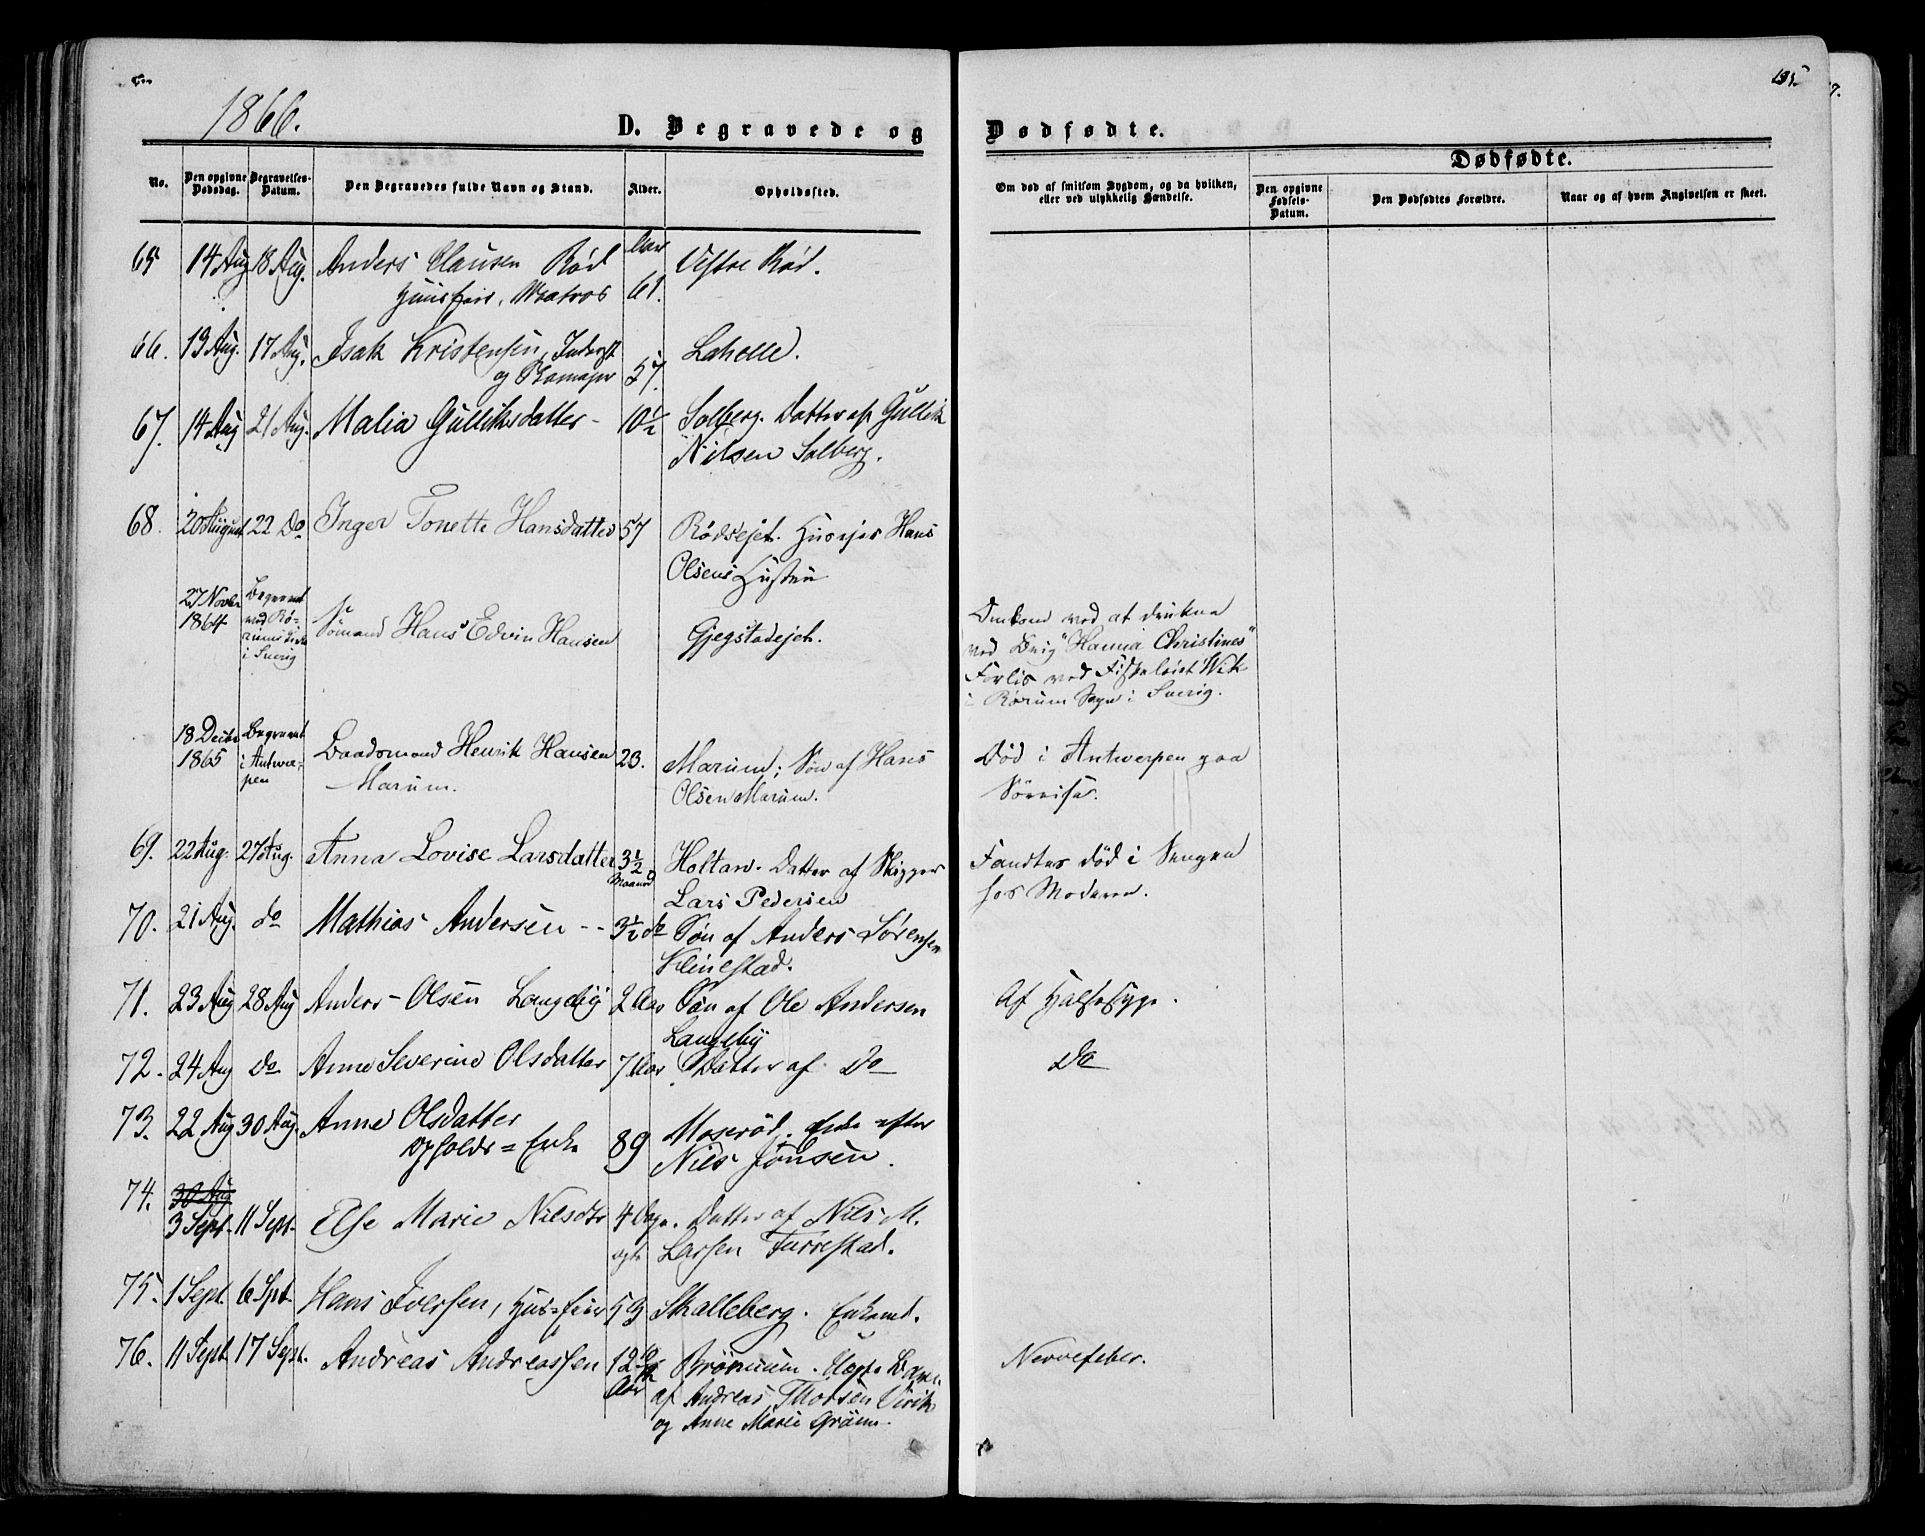 1866.
D. Begravede og Dødfødte.
195.
No.
Den opgivne Dødsdag.
Begravelses-Datum.
Den Begravedes fulde Navn og Stand.
Alder.
Opholdssted.
Om død af smitsom Sygdom, og da hvilken, eller ved ulykkelig Hændelse.
Dødfødte.
Den opgivne Fødsels-Datum.
Den Dødfødtes Forældre.
Naar og af hvem Angivelsen er skeet.
65 14 Aug 18 Aug. Anders Clausen Rød Aar Vestre Rød.
Huusfair, Matros 61.
66. 13 Aug. 17 Aug. Isak Kristensen, Inderst Lahelle.
og 57.
67. 14 Aug 21 Aug. Malia Gulliksdatter - 10½ Solberg. Datter af Gullik
Nilsen Solberg.
68. 20 August 22 Do Inger Tonette Hansdatter 57 Rødsejet. Huusejer Hans
Olsens Hustru
27 Novbr Begravet
1864 ved Rø- Sømand Hans Edvin Hansen Gjegstadejet. Omkom ved at drukne
i Sverig ved Brig "Hanna Christines"
Forlis ved Fiskeleiet Wik
i Rørum Sogn i Sverig.
18 Decbr Begravet
1865 i Antwer- Baadsmand Henrik Hansen 23. Marum; Søn af Hans Død i Antwerpen paa
pen Marum. Olsen Marum. Søreise.
69. 22 Aug. 27 Aug. Anna Lovise Larsdatter 3½ Holtan. Datter af Skipper Fandtes død i Sengen
Maaned Lars Pedersen hos Moderen.
70. 21 Aug. do Mathias Andersen - - 3½ do Søn af Anders Sørensen
Klinestad.
71. 23 Aug 28 Aug Anders Olsen Langeby 2 Aar Søn af Ole Andersen Af Halssyge.
Langeby
72. 24 Aug do Anne Severine Olsdatter 7 Aar Datter af Do Do
73. 22 Aug 30 Aug. Anne Olsdatter Moserød. Enke efter
Opholds=Enke 89 Nils Jonsen.
74. 30 Aug
3 Sept. 11 Sept. Else Marie Nilsdtr 4 Dage. Datter af Nils M.
Larsen Furrestad.
75. 1 Sept. 6 Spt. Hans Iversen, Hus=feier 59 Skalleberg. Enkemd.
76. 11 Sept. 17 Sept. Andreas Andreassen 12 Brønum. Uægte Barn Nervefeber.
Aar af Andreas Thorsen Virik
og Anne Marie Grøm.